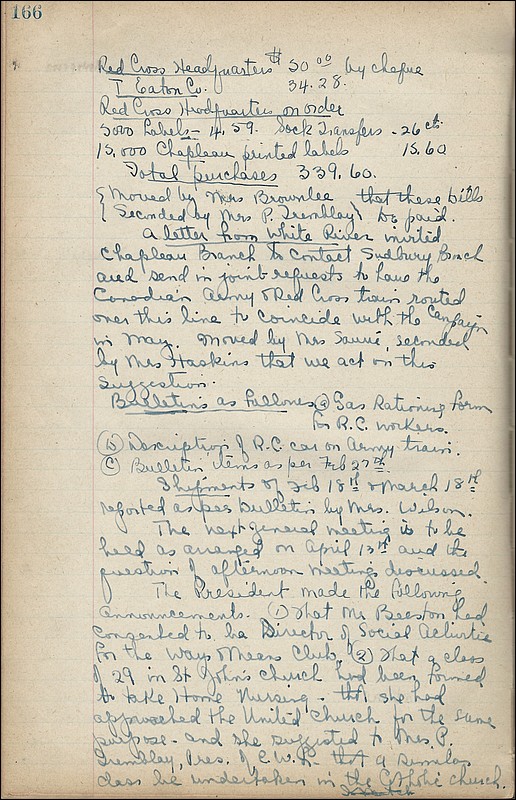 166
Red Cross Headquarters $50 00 by cheque
T. Eaton Co. 34.28.
Red Cross Headquarters on order
5000 Labels - 4.59. Sock Transfers - 26 cts
15,000 Chapleau printed labels 15.60
Total purchases 339.60.
{ Moved by Mrs Brownlee that these bills
{ Seconded by Mrs P. Tremblay be paid.
A letter from White River invited
Chapleau Branch to contact Sudbury Branch
and send in joint requests to have the
Canadian Army & Red Cross train routed
over this line to coincide with the Campaign
in May. Moved by Mrs Sauvé, seconded
by Mrs Haskins that we act on this
suggestion.
Bulletins as Follows (a) Gas Rationing Form
for R.C. workers.
(b) Description of R.C. car on Army train.
(c) Bulletin items as per Feb 27th.
Shipments of Feb 18th & March 18th
reported as per bulletin by Mrs. Wilson.
The next general meeting is to be
held as arranged on April 13th and the
question of afternoon meetings discussed.
The President made the following
announcements. (1) That Mr Beeston had
consented to be Director of Social Activities
for the Ways & Means Club, (2) That a class
of 29 in St John's church had been formed
to take Home Nursing - she had
approached the United Church for the same
purpose - and she suggested to Mrs. P.
Tremblay, Pres. of C.W.L. that a similar
class be undertaken in the Catholic church.